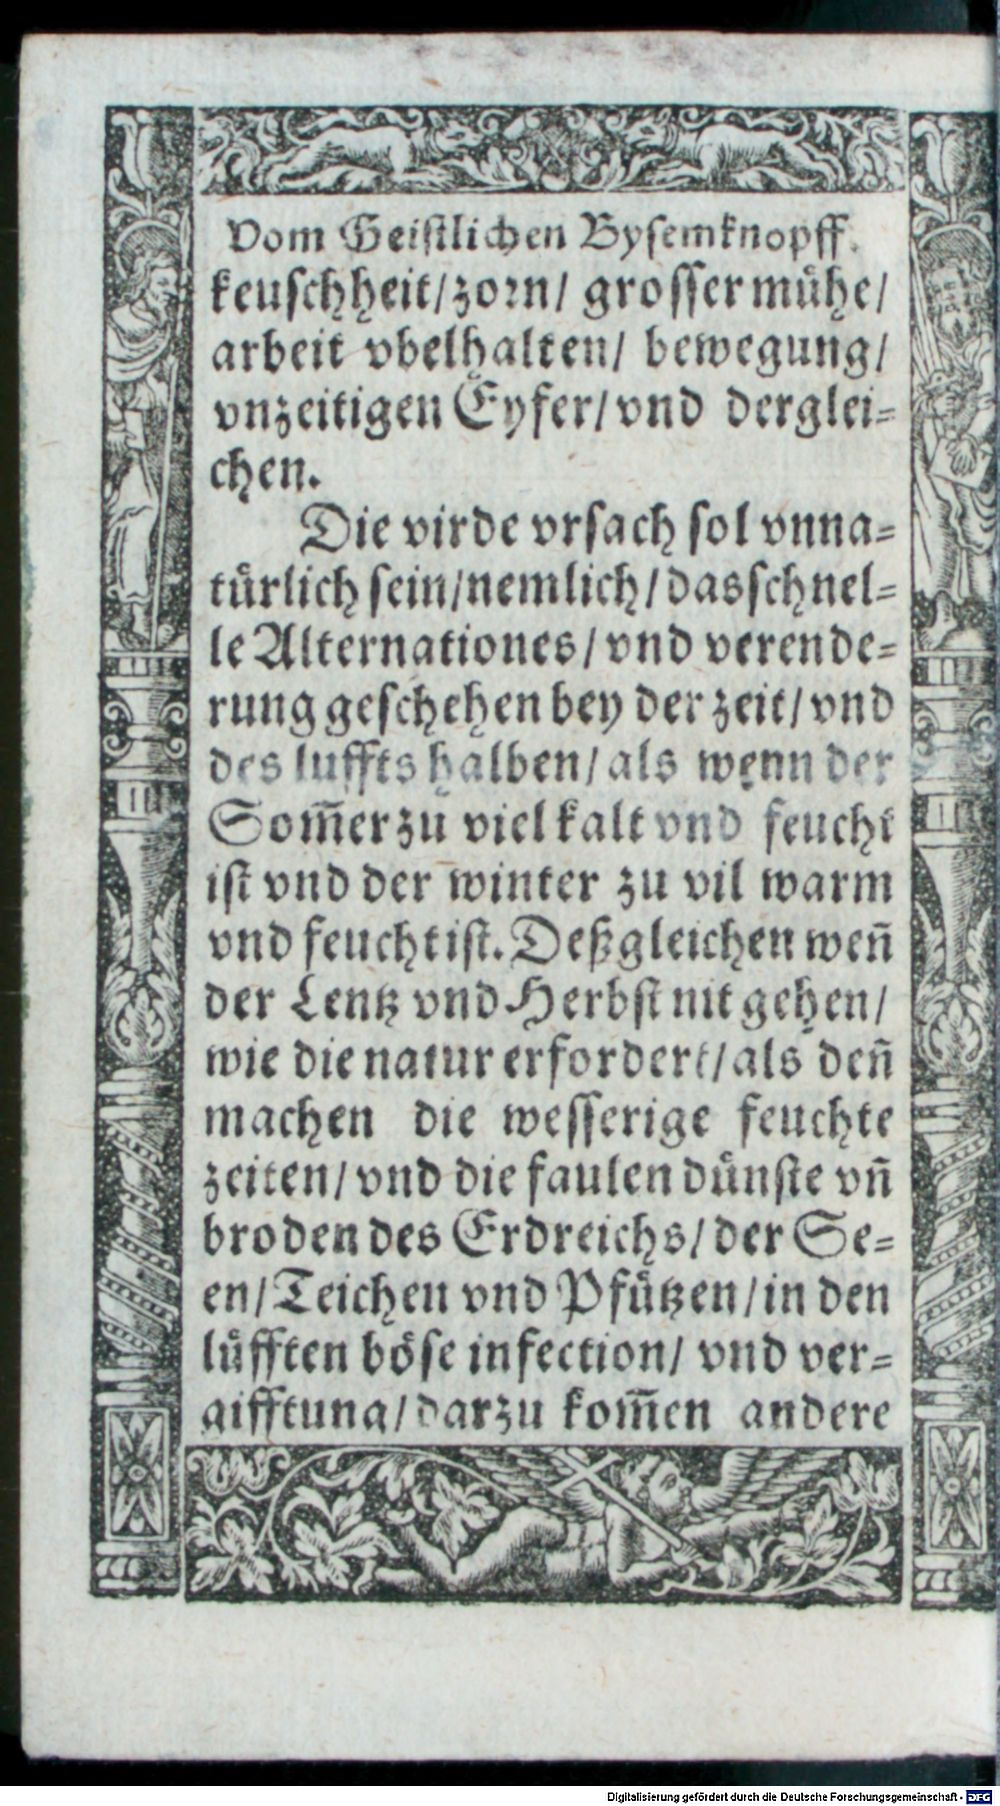 Vom Geistlichen Bysemknopff.
keuschheit/ zorn/ grosser mühe/
arbeit vbelhalten/ bewegung/
vnzeitigen Eyfer/ vnd derglei-
chen.
Die virde vrsach sol vnna-
türlich sein/ nemlich/ das schnel-
le Alternationes/ vnd verende-
rung geschehen bey der zeit/ vnd
des luffts halben/ als wenn der
Som̄er zu viel kalt vnd feucht
ist vnd der winter zu vil warm
vnd feucht ist. Deßgleichen wen̄
der Lentz vnd Herbst nit gehen/
wie die natur erfordert/ als den̄
machen die wesserige feuchte
zeiten/ vnd die faulen dünste vn̄
broden des Erdreichs/ der Se-
en/ Teichen vnd Pfützen/ in den
lüfften böse infection/ vnd ver-
gifftung/ darzu kom̄en andere
Digitalisierung gefördert durch die Deutsche Forschungsgemeinschaft - DFG